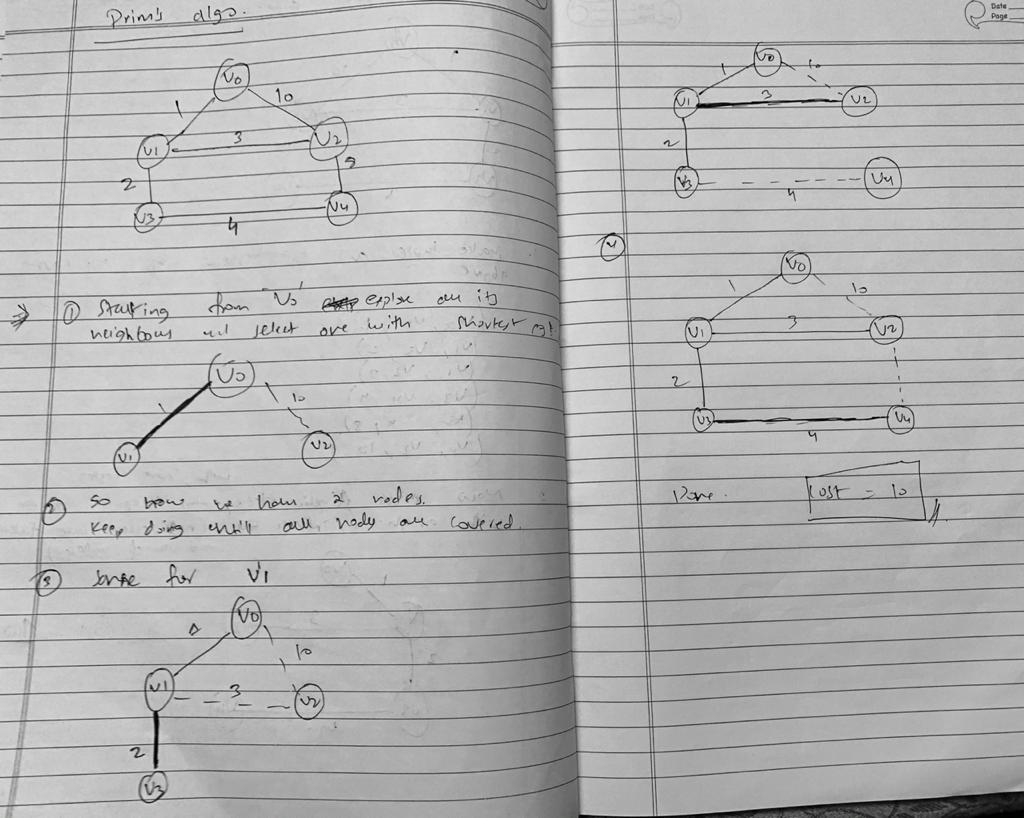 Prim's algo.
V0
1
10
V1
3
V2
2
V3
4
V4
① Starting from V0 explore all its
neighbours and select one with shortest
V0
1
10
V1
V2
② So now we have 2 nodes.
Keep doing untill all nodes are covered.
③ Same for V1
V0
10
V1
3
V2
2
V3
Date
Page
V0
1
10
V1
3
V2
2
V3
4
V4
④
V0
1
10
V1
3
V2
2
V3
4
V4
Done.
Cost = 10